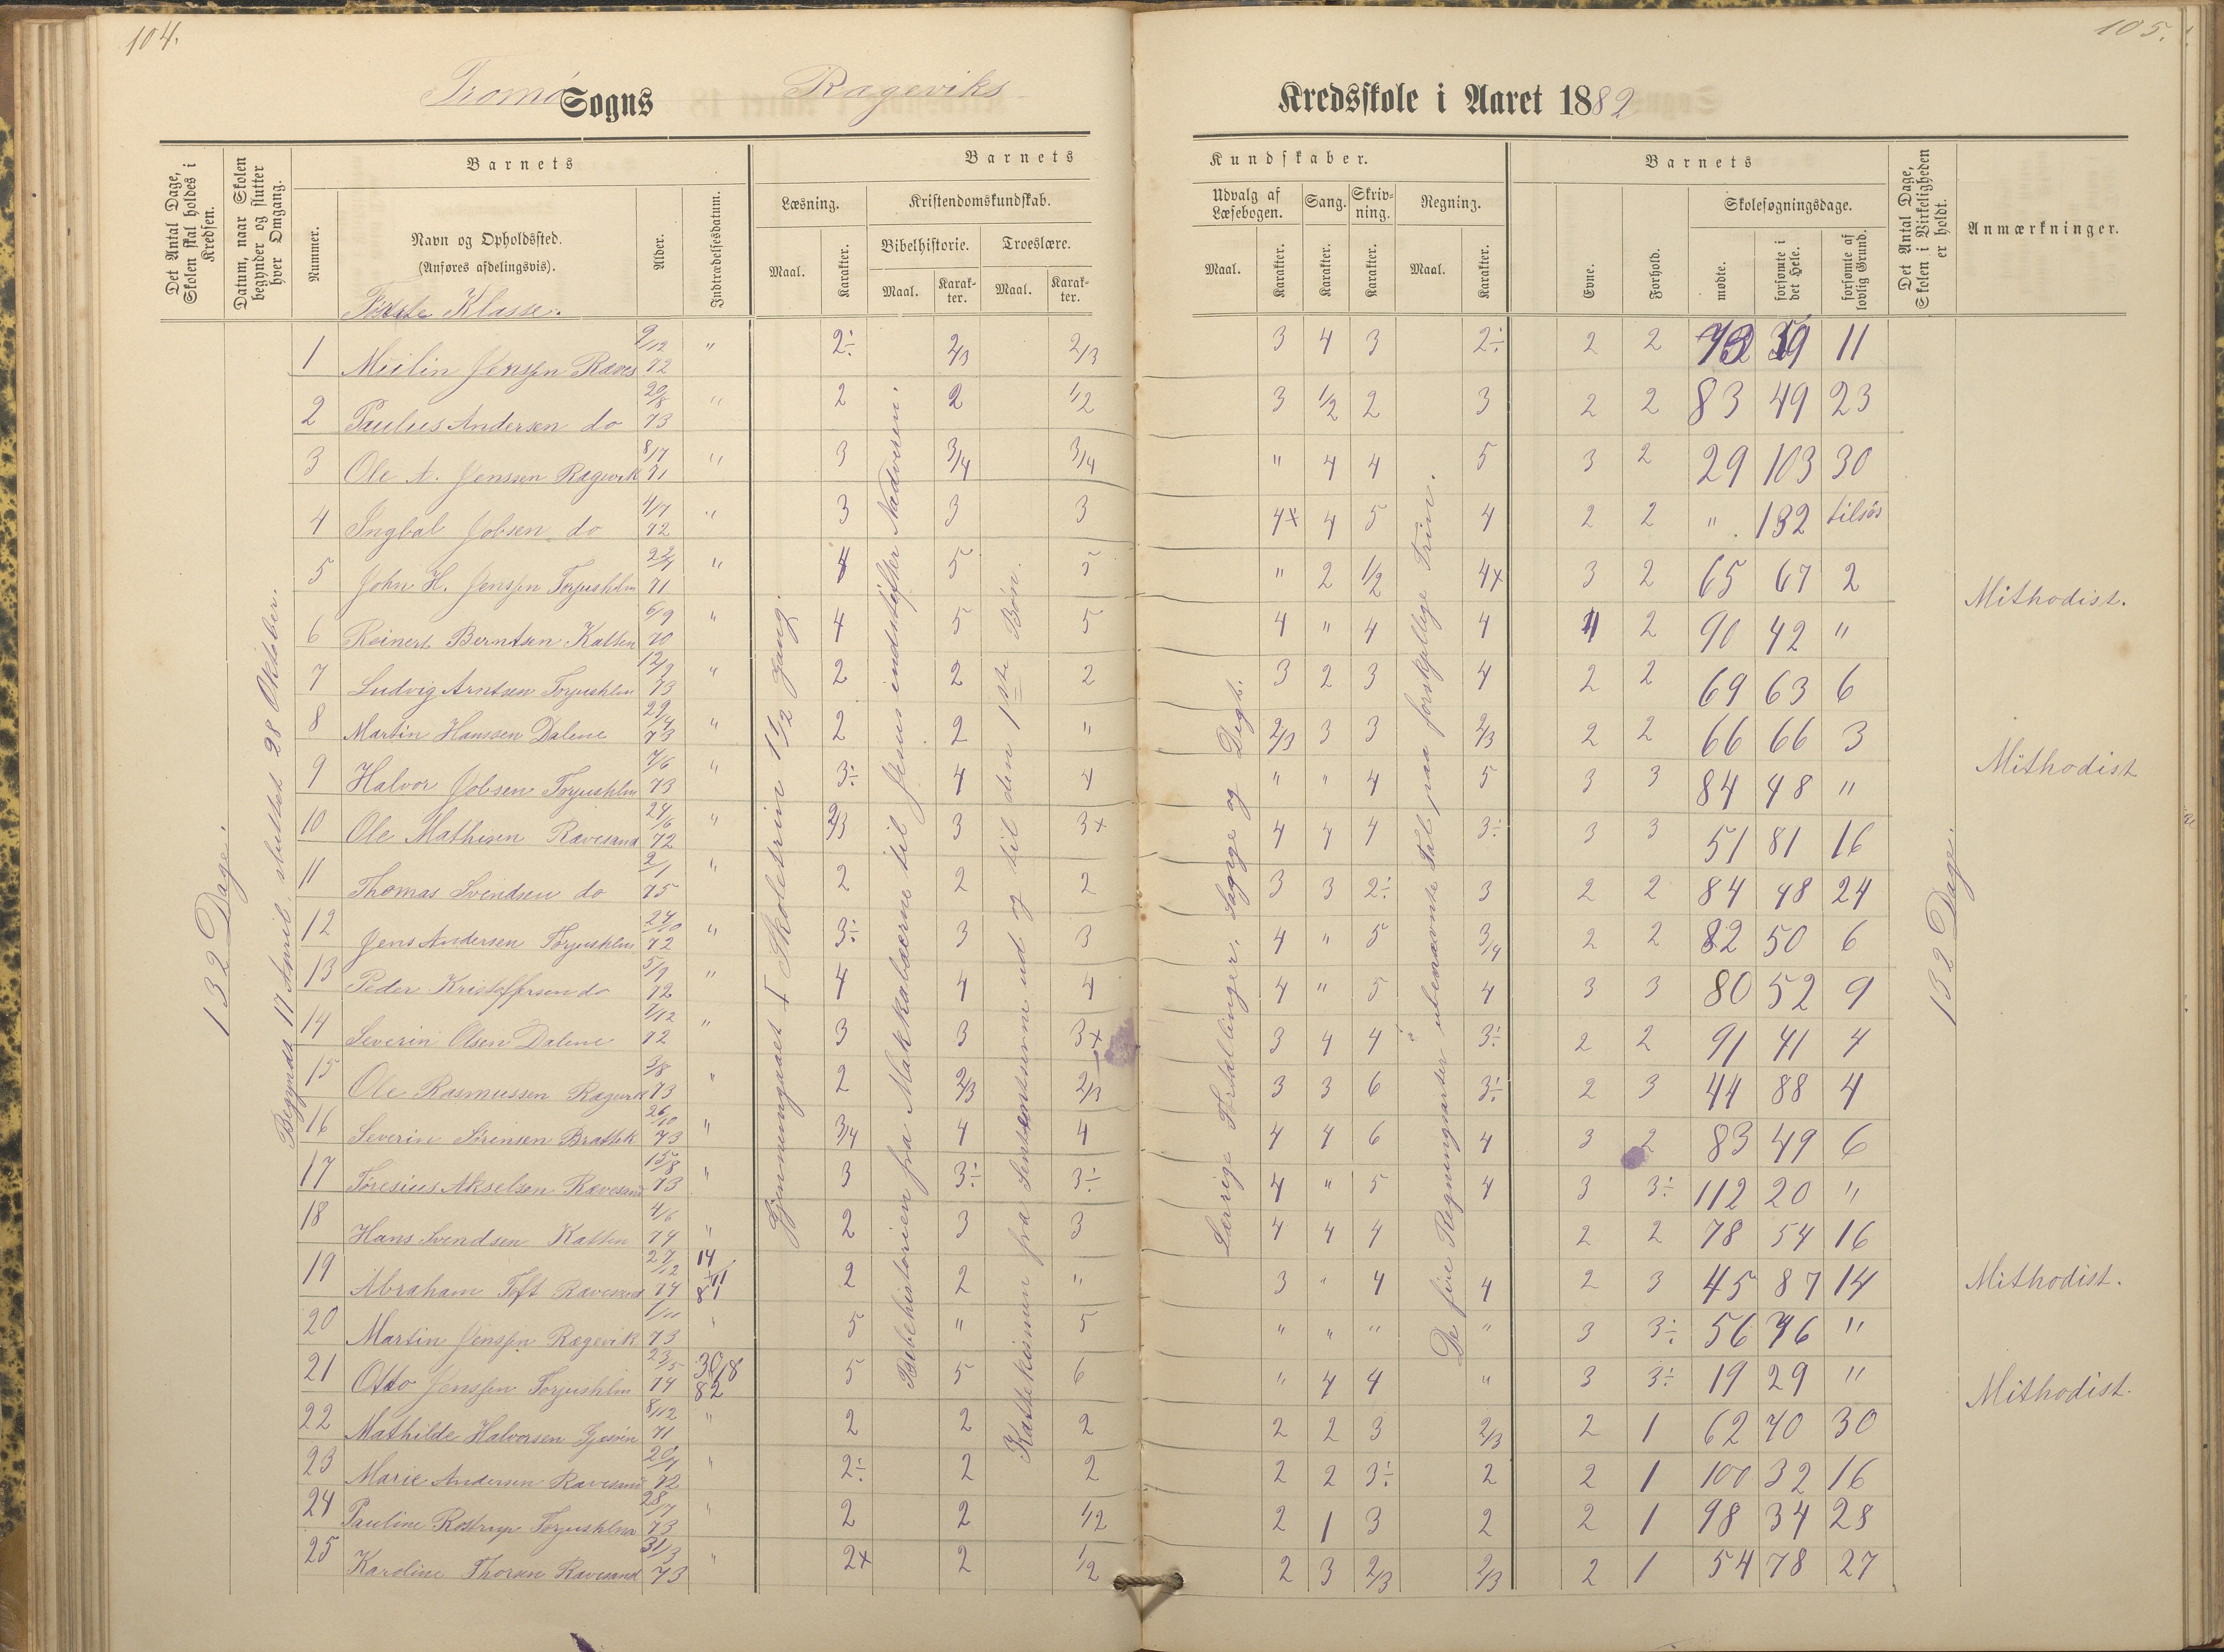 104.
105.
Tromø Sogns Rageviks
Kredsskole i Aaret 1882
Det Antal Dage, Skolen skal holdes i Kredsen.
Datum, naar Skolen begynder og slutter hver Omgang.
Barnets
Nummer.
Navn og Opholdssted.
(Anføres afdelingsvis).
Alder.
Indtrædelsesdatum.
Barnets
Læsning.
Kristendomskundskab.
Bibelhistorie.
Troeslære.
Maal.
Karakter.
Maal.
Karakter.
Maal.
Karakter.
Kundskaber.
Udvalg af Læsebogen.
Sang.
Skrivning.
Regning.
Maal.
Karakter.
Karakter.
Karakter.
Maal.
Karakter.
Barnets
Evne.
Forhold.
Skolesøgningsdage.
mødte.
forsømte i det Hele.
forsømte af lovlig Grund.
Det Antal Dage, Skolen i Virkeligheden er holdt.
Anmærkninger.
132 Dage.
Begyndt 17 April, sluttet 28 Oktober.
Gjennemgaaet I Skoletrin 1 1/2 Gang.
Bibelhistorien fra Makkabæerne til Jesus indstifter Nadveren.
Kathekismen fra Sentenserne ud og til den 1ste Bøn.
Lærrige Fortællinger, Sagge og Digt.
De fire Regningsarter i ubenævnte Tal paa forskjellige Trin.
132 Dage.
Første Klasse.
1 Jenssen Raves 2/12 72 " 2÷ 2/3 2/3 3 4 3 2÷ 2 2 11
2 Paulus Andersen do 20/8 73 " 2 2 1/2 3 1/2 2 3 2 2 83 49 23
3 Ole A. Jenssen Ragevik 8/7 71 " 3 3/4 3/4 " 4 4 5 3 2 29 103 30
4 Ingbal Jobsen do 4/7 72 " 3 3 3 4x 4 5 4 2 2 " 132 tilsøs
5 John H. Jenssen Torjusholm 22/4 71 " 4 5 5 " 2 1/2 4x 3 2 65 67 2 Mithodist.
6 Reinert Berntsen Katten 6/9 70 " 4 5 5 4 " 4 4 4 2 90 42 "
7 Ludvig Arntsen Torjusholm 12/2 73 " 2 2 2 3 2 3 4 2 2 69 63 6
8 Martin Hanssen Dalene 29/4 73 " 2 2 " 2/3 3 3 2/3 2 2 66 66 3
9 Halvor Jobsen Torjusholm 7/6 73 " 3÷ 4 4 " " 4 5 3 3 84 48 " Mithodist
10 Ole Mathisen Ravesand 24/6 72 " 2/3 3 3x 4 4 4 3÷ 3 3 51 81 16
11 Thomas Svendsen do 2/1 75 " 2 2 2 3 3 2÷ 3 2 2 84 48 24
12 Jens Andersen Torjusholm 24/10 72 " 3÷ 3 3 4 " 5 3/4 2 2 82 50 6
13 Peder Kristoffersen do 5/9 72 " 4 4 4 4 " 5 4 3 3 80 52 9
14 Severin Olsen Dalene 1/12 72 " 3 3 3x 3 4 4 3÷ 2 2 91 41 4
15 Ole Rasmussen Ragevik 3/8 73 " 2 2/3 2/3 3 3 6 3÷ 2 3 44 88 4
16 Severin Sørensen Brattek 26/10 73 " 3/4 4 4 4 4 6 4 3 2 83 49 6
17 Tøresius Akselsen Ravesand 15/8 73 " 3 3÷ 3÷ 4 " 5 4 3 3÷ 112 20 "
18 Hans Svendsen Katten 4/6 74 " 2 3 3 4 4 4 2 2 78 54 16
19 Abraham Toft Ravesand 27/12 74 14/11 81 2 2 " 3 " 4 4 2 3 45 87 14 Mithodist.
20 Martin Jenssen Ragevik 1/11 73 " 5 " 5 " " " " 3 3÷ 56 76 "
21 Otto Jenssen Torjusholm 23/5 74 30/8 82 5 5 6 " 4 4 " 3 3÷ 19 29 " Mithodist.
22 Mathilde Halvorsen 8/12 71 " 2 2 2 2 2 3 2/3 2 1 62 70 30
23 Marie Andersen Ravesand 20/4 72 " 2÷ 2 2 2 2 3÷ 2 2 1 100 32 16
24 Pauline Rostrup Torjusholm 28/7 73 " 2 2 1/2 2 1 3 2 2 1 98 34 28
25 Karoline Thorsen Ravesand 31/3 73 " 2x 2 1/2 2 3 2/3 2/3 2 1 54 78 27